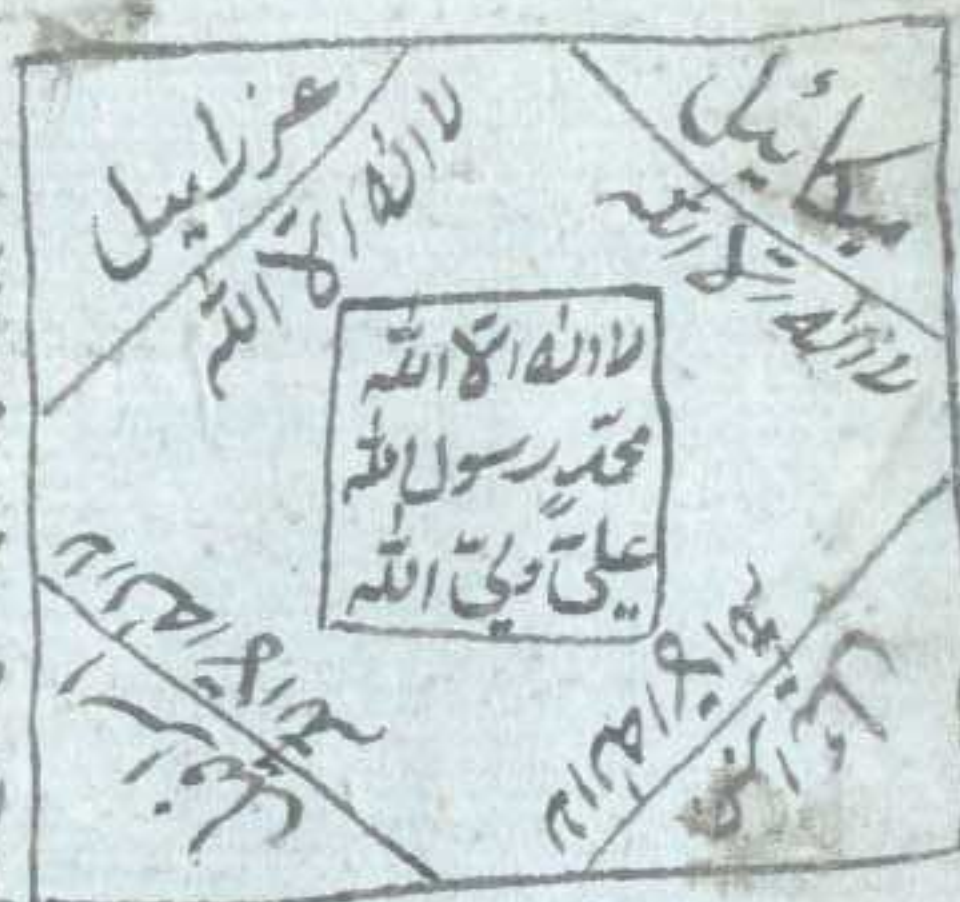 ميكائيل
لا اله الا الله
عزراييل
لا اله الا الله
لا اله الّا الله
محمّدٌ رسول الله
عليّ وليّ الله
لا اله الا الله
اسرافيل
لا اله الا الله
جبرائيل